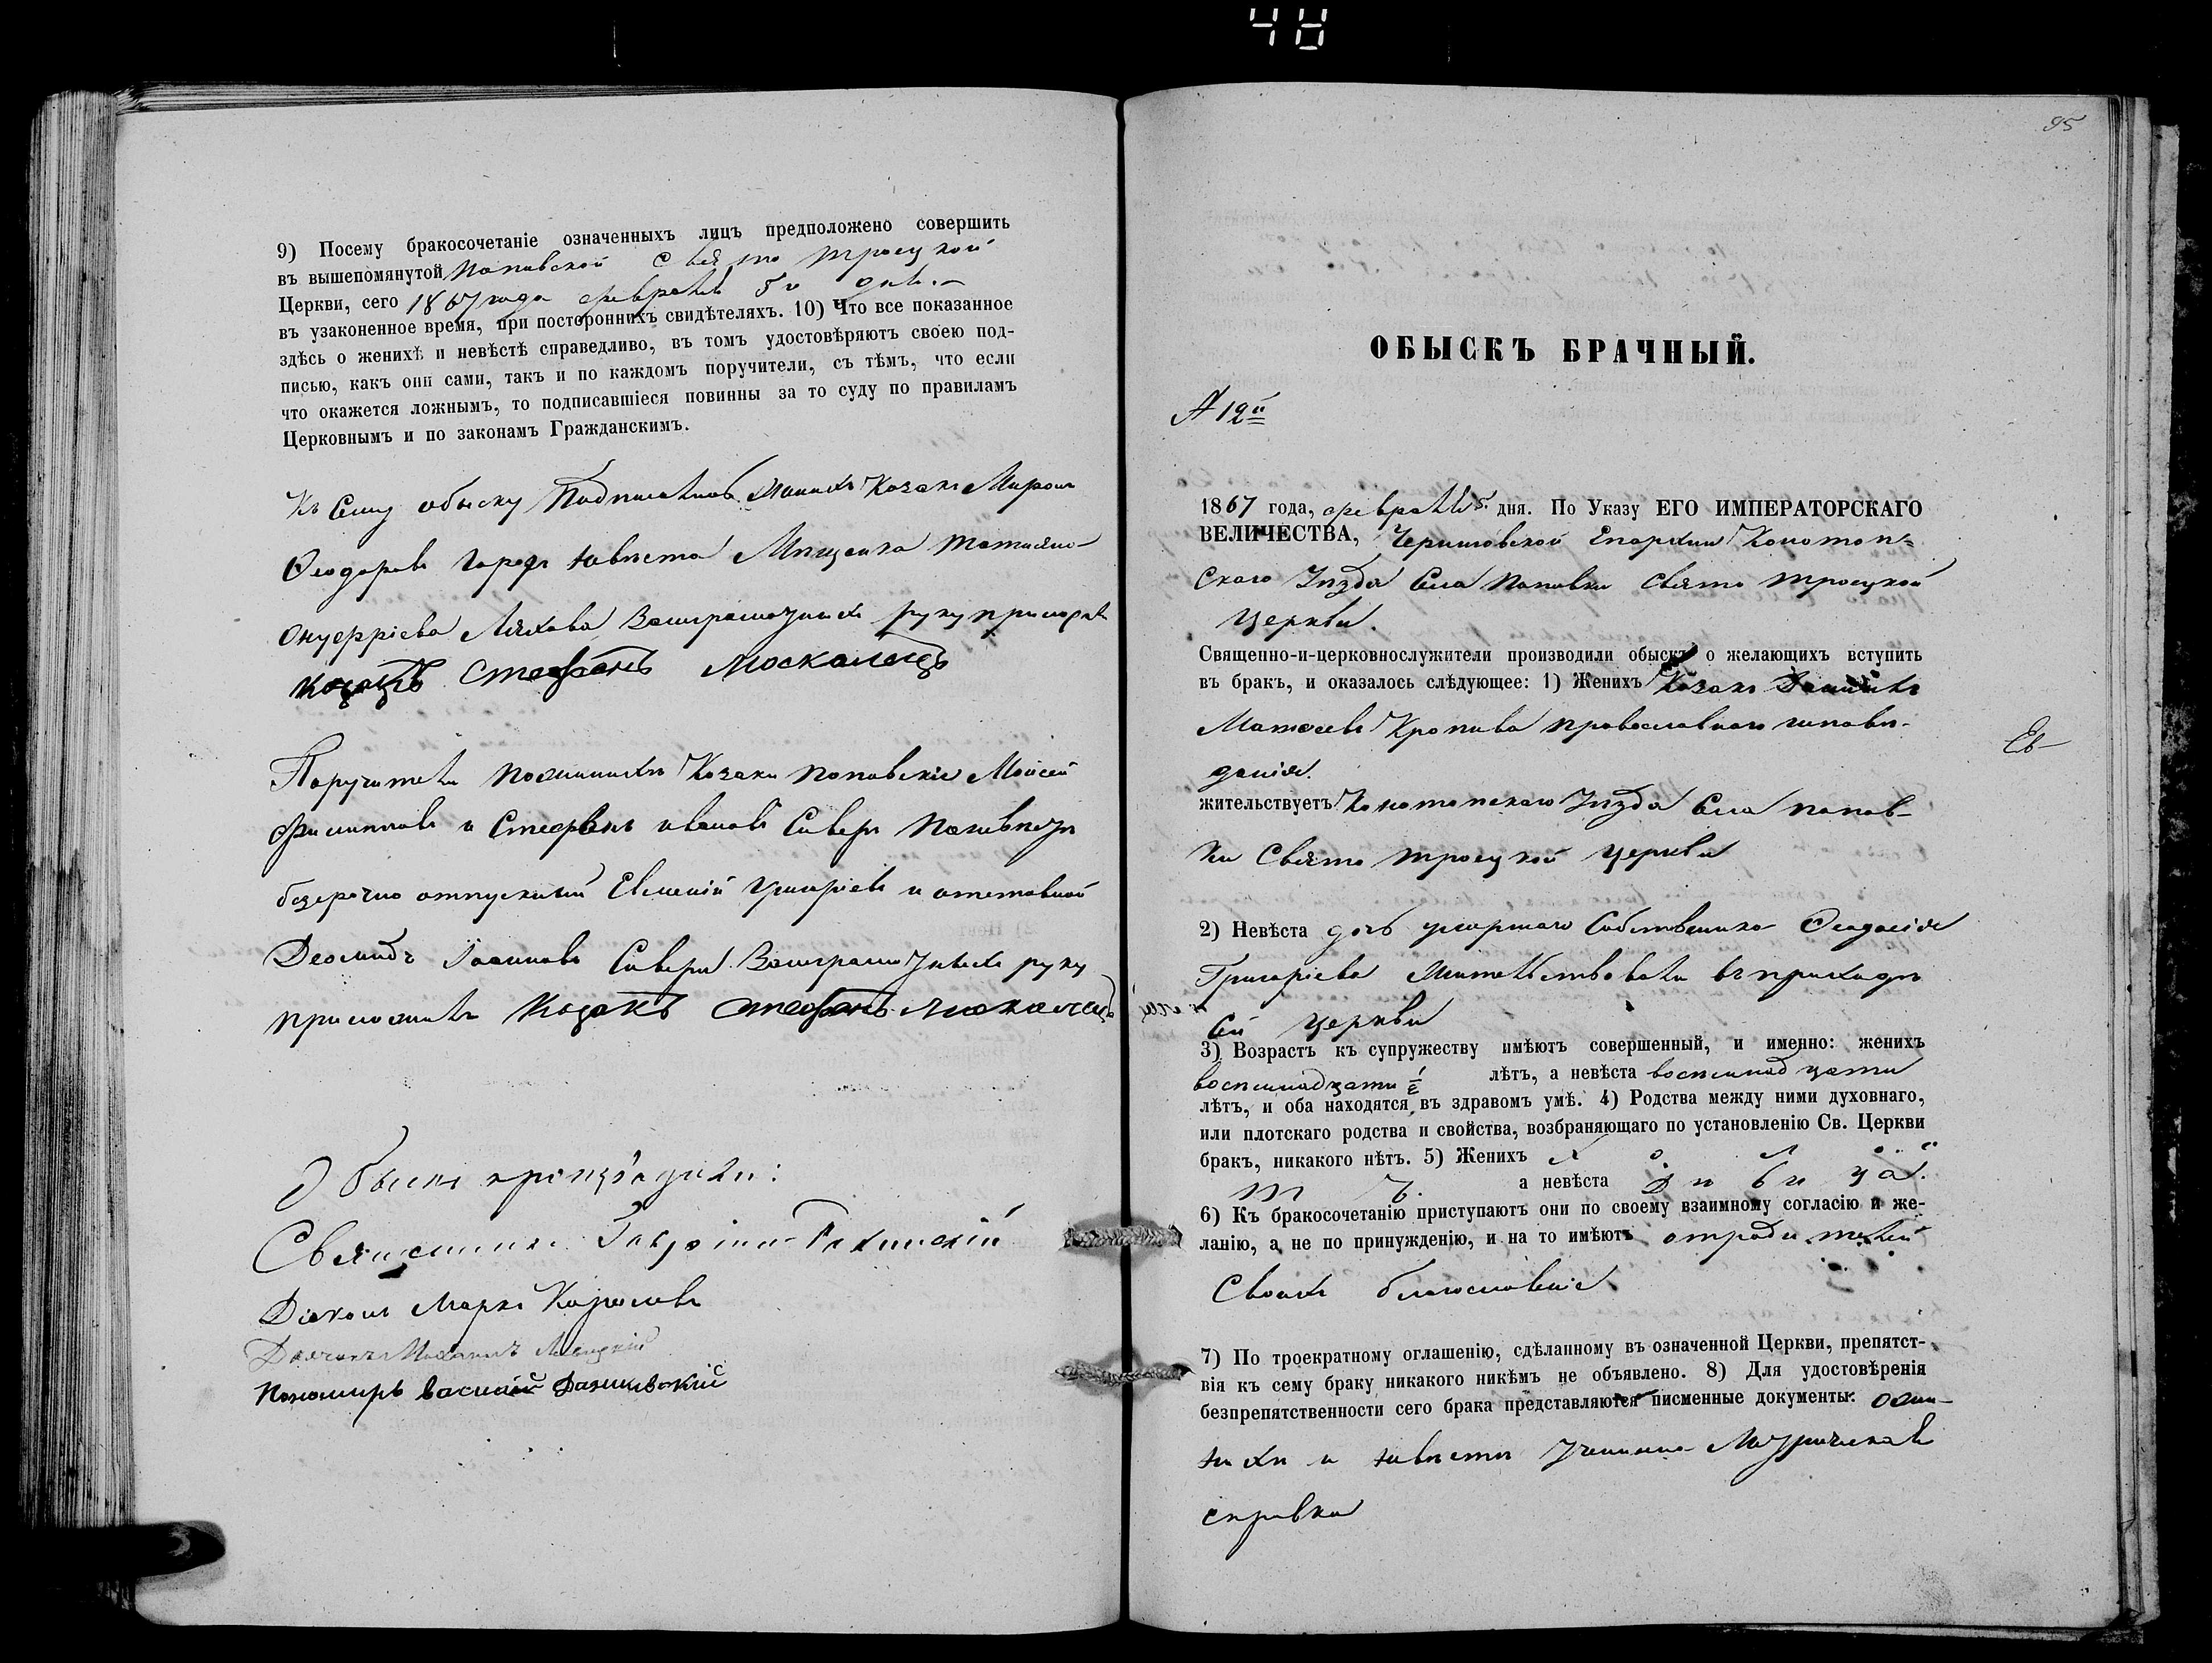 48
9) Посему бракосочетаніе означенныхъ лицъ предположено совершить
въ вышепомянутой Поповской Свято Троецкой
Церкви, сего 1867 года февраля 5го дня.
въ узаконенное время, при постороннихъ свидѣтеляхъ. 10) Что все показанное
здѣсь о женихѣ и невѣстѣ справедливо, въ томъ удостовѣряютъ своею под-
писью, какъ они сами, такъ и по каждомъ поручители, съ тѣмъ, что если
что окажется ложнымъ, то подписавшіеся повинны за то суду по правиламъ
Церковнымъ и по законамъ Гражданскимъ.
Къ Сему обыску Козакъ Миронъ
Ѳеодоровъ невѣста
Онуфріева Ляхова руку приложилъ
козакъ Стефанъ Москалецъ
Поручители по женихѣ Козаки поповские Моисей
Филиповъ и Стефанъ Ивановъ Сиверъ По невѣстѣ
безсрочно отпускный Евменій Григоріевъ и отставной
Іоанновъ руку
приложилъ Козакъ Стефанъ Москалецъ
Обыскъ производили:
Священникъ
Діаконъ Марко
Дьячекъ Михаилъ Левицкій
Пономарь Василий
95
ОБЫСКЪ БРАЧНЫЙ.
№ 12й
1867 года, февраля 5. дня. По Указу ЕГО ИМПЕРАТОРСКАГО
ВЕЛИЧЕСТВА, Черниговской Епархіи Конотоп-
Скаго Уѣзда Села Поповки Свято Троецкой
Церкви.
Священно-и-церковнослужители производили обыскъ о желающихъ вступить
въ бракъ, и оказалось слѣдующее: 1) Женихъ Козакъ Даніилъ
Матѳеевъ Кропива православнаго исповѣ-
данія.
жительствуетъ Конотопскаго Уѣзда Села Попов-
ки Свято Троецкой Церкви
2) Невѣста дочь умершаго Собственника Ѳеодосія
Григоріева жительствовала въ приходѣ
Сей Церкви
3) Возрастъ къ супружеству имѣютъ совершенный, и именно: женихъ
восемнадцати ½ лѣтъ, а невѣста восемнадцати
лѣтъ, и оба находятся въ здравомъ умѣ. 4) Родства между ними духовнаго,
или плотскаго родства и свойства, возбраняющаго по установленію Св. Церкви
бракъ, никакого нѣтъ. 5) Женихъ холос
тъ. а невѣста дѣвица.
6) Къ бракосочетанію приступаютъ они по своему взаимному согласію и же-
ланію, а не по принужденію, и на то имѣютъ отродителей
Своихъ благословеніе
7) По троекратному оглашенію, сдѣланному въ означенной Церкви, препятст-
вія къ сему браку никакого никѣмъ не объявлено. 8) Для удостовѣренія
безпрепятственности сего брака представляются писменные документы: ожи-
нихѣ и невѣсте учинена Метрическая
справка